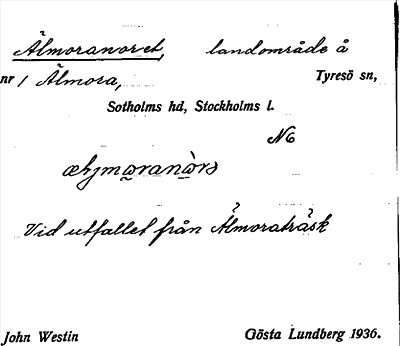 Älmoranoret, landområde å
nr 1 Älmora, Tyresö sn,
Sotholms hd, Stockholms l.
N6
Vid utfallet från Älmoraträsk
John Westin Gösta Lundberg 1936.